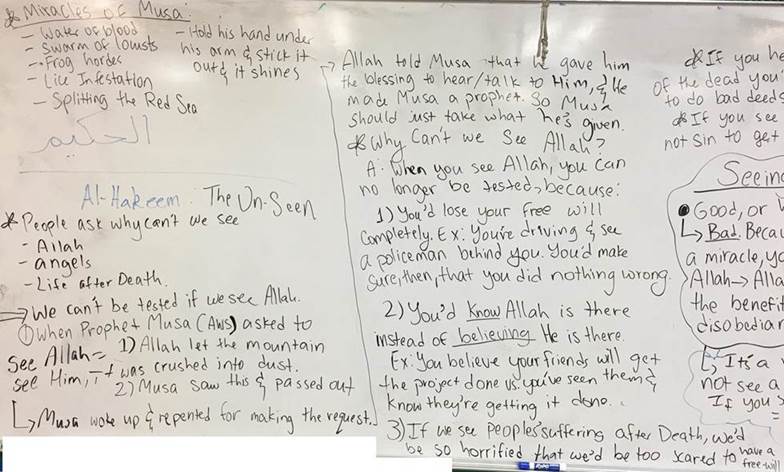 * Miracles of Musa:
- Water of blood
- Swarm of lousts
- Frog hordes
- Lice Infestation
- Splitting the Red Sea
- Hold his hand under
his arm & stick it
out & it shines
الحكيم
Al-Hakeem: The Un-Seen
* People ask why can't we see
- Allah
- angels
- Life after Death.
⇒ We can't be tested if we see Allah.
① When Prophet Musa (AWS) asked to
see Allah = 1) Allah let the mountain
see Him, it was crushed into dust.
2) Musa saw this & passed out
↳ Musa woke up & repented for making the request.
→ Allah told Musa that he gave him
the blessing to hear/talk to Him, & He
made Musa a prophet. So Musa
should just take what he's given.
* Why Can't we See Allah?
A: When you see Allah, you can
no longer be tested, because:
1) You'd lose your free will
completely. Ex: You're driving & see
a policeman behind you. You'd make
sure, then, that you did nothing wrong.
2) You'd Know Allah is there
instead of believing He is there.
Ex: You believe your friends will get
the project done vs. you've seen them &
know they're getting it done.
3) If we see people's suffering after Death, we'd
be so horrified that we'd be too scared to have a
free will
* If you he
of the dead you
to do bad deeds
* If you see
not sin to get
Seeing
• Good, or
↳ Bad. Becau
a miracle, yo
Allah → Alla
the benefit
disobedian
↳ It's a
not see a
If you